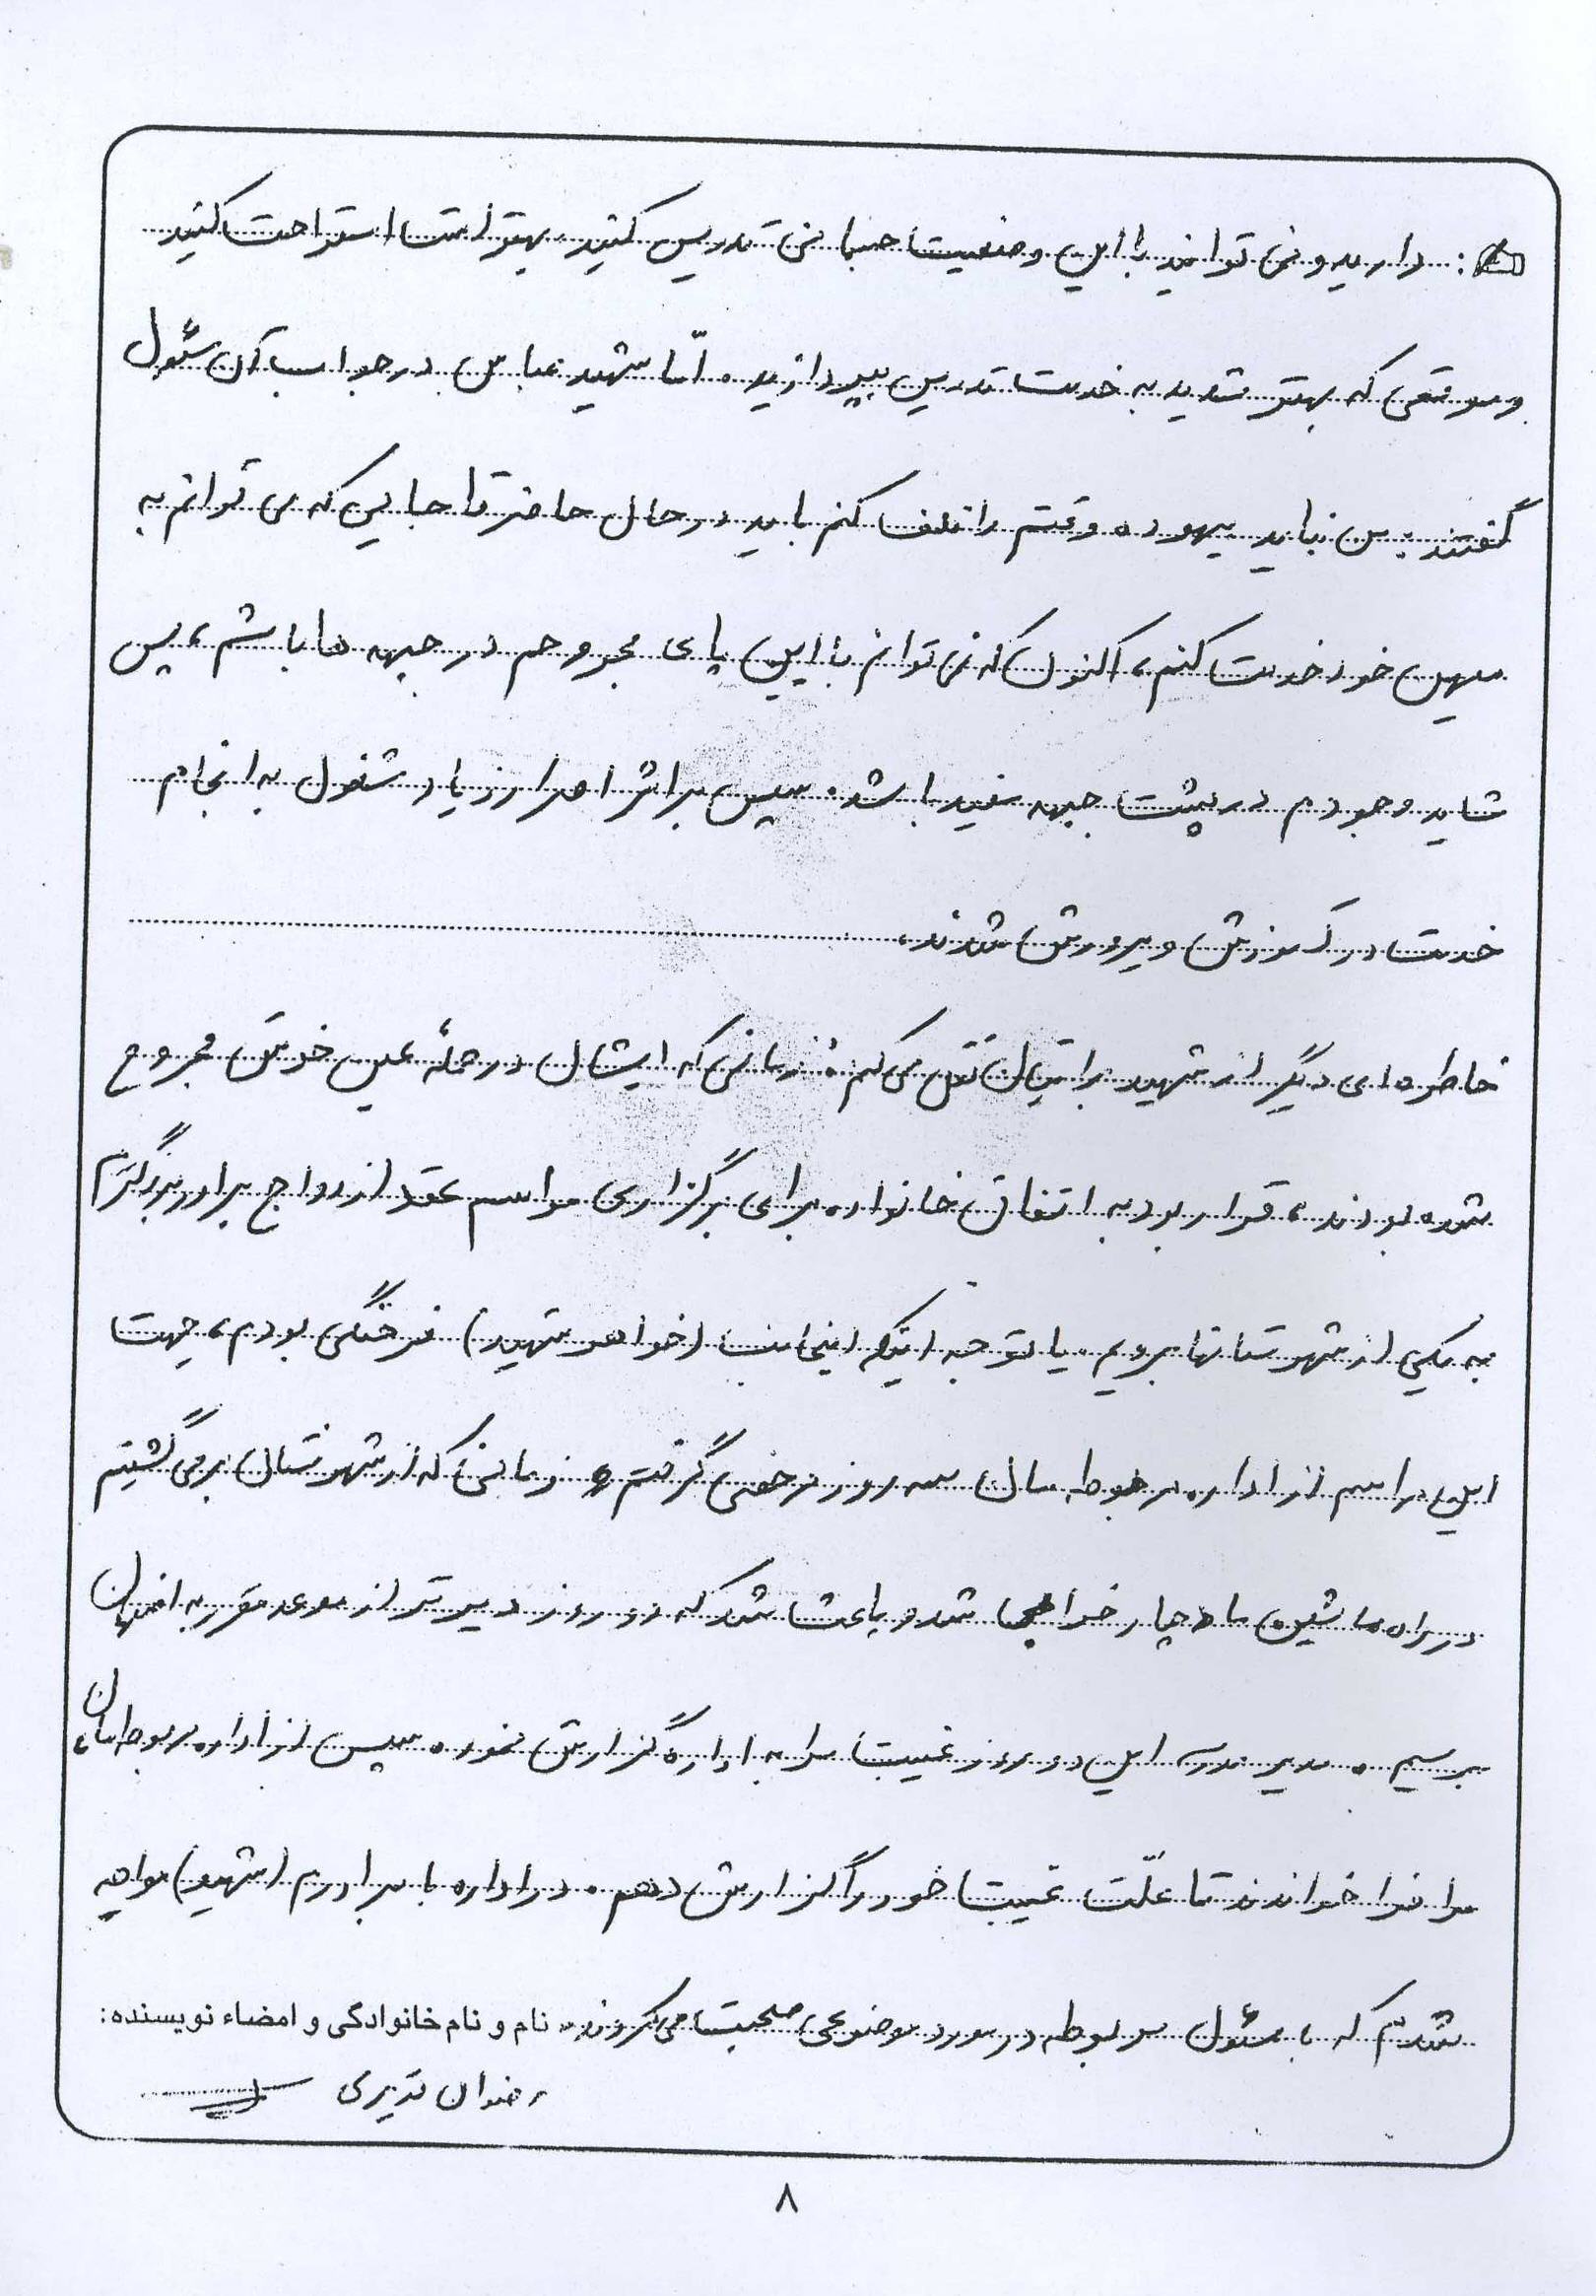 دارید و نمی توانید با این وضعیت جسمانی تدریس کنید. بهتر است استراحت کنید
و موقعی که بهتر شدید به خدمت تدریس بپردازید. امّا شهید عباس در جواب آن مسئول
گفتند: من نباید بیهوده وقتم را تلف کنم باید در حال حاضر تا جایی که می توانم به
میهن خود خدمت کنم، اکنون که نمی توانم با این پای مجروحم در جبهه ها باشم، پس
شاید وجودم در پشت جبهه مفید باشد. سپس بر اثر اصرار زیاد مشغول به انجام
خدمت در آموزش و پرورش شدند.
خاطره ای دیگر از شهید برایتان نقل می کنم: زمانی که ایشان در حملهٔ عین خوش مجروح
شده بودند، قرار بود به اتفاق خانواده برای برگزاری مراسم عقد ازدواج برادر بزرگترم
به یکی از شهرستانها برویم. با توجه اینکه اینجانب (خواهر شهید) فرهنگی بودم، جهت
این مراسم از اداره مربوطه مان سه روز مرخصی گرفتم و زمانی که از شهرستان بر می گشتیم
در راه ماشین ما دچار خرابی شد و باعث شد که دو روز دیرتر از موعد مقرر به اصفهان
برسیم. مدیر مدرسه این دو روز غیبت مرا به اداره گزارش نمود. سپس از اداره مربوطه مان،
مرا فرا خواندند تا علّت غیبت خود را گزارش دهم. در اداره با برادرم (شهید) مواجه
شدم که با مسئول مربوطه در مورد موضوعی صحبت می کردند. نام و نام خانوادگی و امضاء نویسنده:
رضوان تدیری
۸